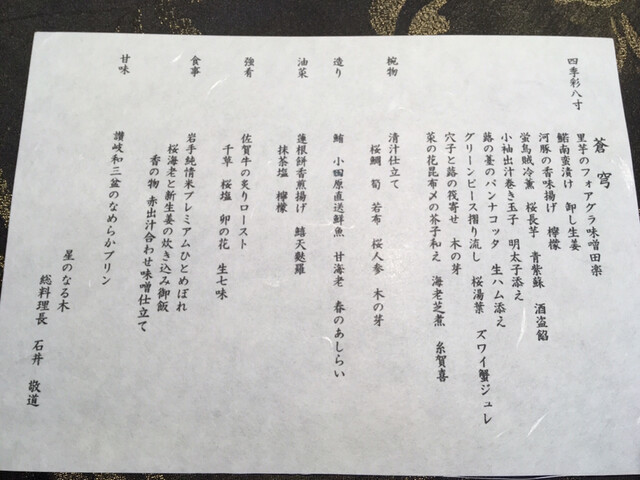 蒼穹
四季彩八寸
里芋のフォアグラ味噌田楽
鯑南蛮漬け 卸し生姜
河豚の香味揚げ 檸檬
蛍烏賊冷薫 桜長芋 青紫蘇 酒盗餡
小袖出汁巻き玉子 明太子添え
蕗の薹のパンナコッタ 生ハム添え
グリーンピース摺り流し 桜湯葉 ズワイ蟹ジュレ
穴子と蕗の筏寄せ 木の芽
菜の花昆布〆の芥子和え 海老芝煮 糸賀喜
椀物
清汁仕立て
桜鯛 筍 若布 桜人参 木の芽
造り
鮪 小田原直送鮮魚 甘海老 春のあしらい
油菜
蓮根餅香煎揚げ 鱚天麩羅
抹茶塩 檸檬
強肴
佐賀牛の炙りロースト
千草 桜塩 卵の花 生七味
食事
岩手純情米プレミアムひとめぼれ
桜海老と新生姜の炊き込み御飯
香の物 赤出汁合わせ味噌仕立て
甘味
讃岐和三盆のなめらかプリン
星のなる木
総料理長 石井 敬道